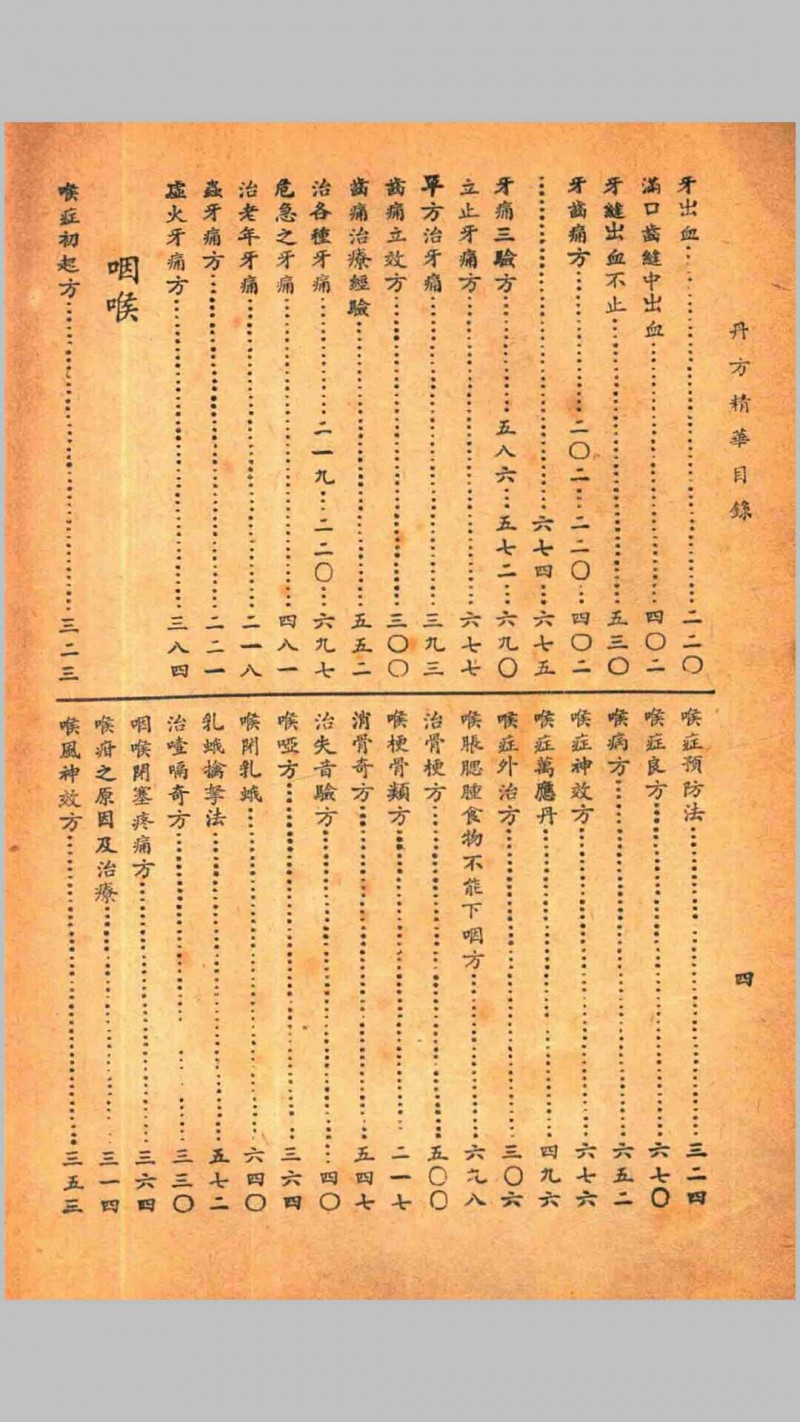 丹方精華目錄
四
牙出血……二二〇
滿口齒縫中出血……四〇二
牙縫出血不止……五三〇
牙齒痛方……二〇二…二二〇…四〇二
……六七四…六七五
牙痛三驗方……五八六…五七二…六九〇
立止牙痛方……六七七
單方治牙痛……三九三
齒痛立效方……三〇〇
齒痛治療經驗……五五二
治各種牙痛……二一九…二二〇…六九七
危急之牙痛……四八一
治老年牙痛……二一八
蟲牙痛方……二二一
虛火牙痛方……三八四
咽喉
喉症初起方……三二三
喉症預防法……三二四
喉症良方……六七〇
喉病方……六五二
喉症神效方……六七六
喉症萬應丹……四九六
喉症外治方……三〇六
喉脹腮腫食物不能下咽方……六九八
治骨梗方……五〇〇
喉梗骨類方……二一七
消骨奇方……五四七
治失音驗方……四〇
喉啞方……三六四
喉閉乳蛾……六四〇
乳蛾擒拏法……五七二
治噎嗝奇方……三三〇
咽喉閉塞疼痛方……三六四
喉疳之原因及治療……三一四
喉風神效方……三五三